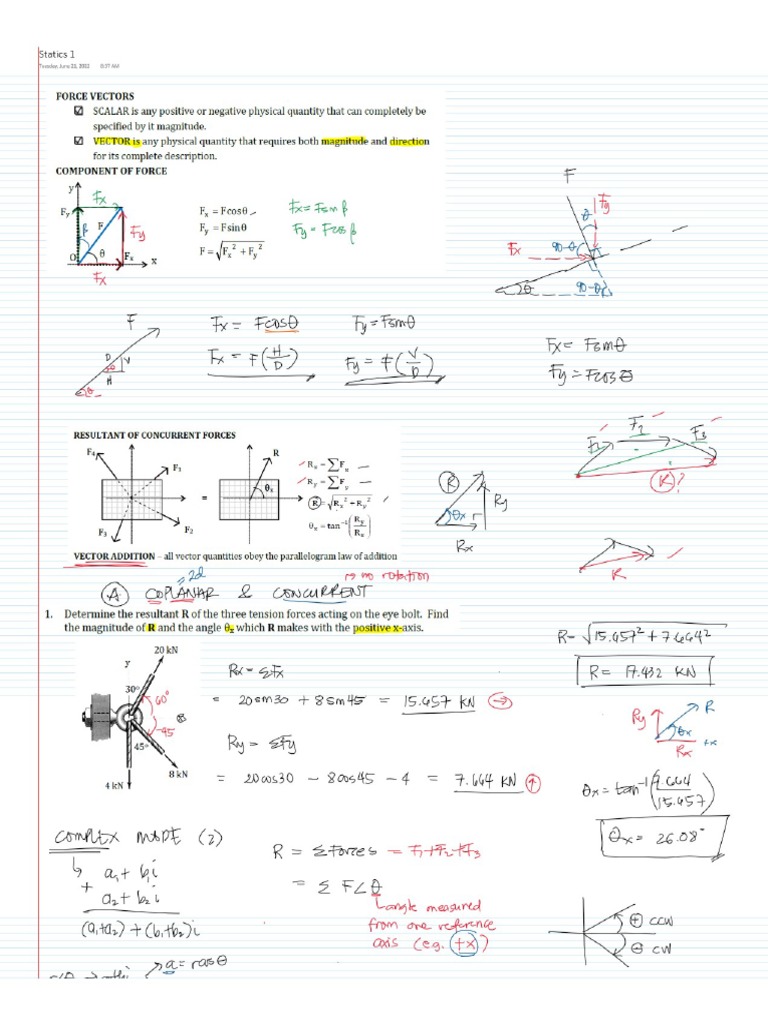 Statics 1
Tuesday, June 21, 2022 8:37 AM
FORCE VECTORS
☑ SCALAR is any positive or negative physical quantity that can completely be
specified by it magnitude.
☑ VECTOR is any physical quantity that requires both magnitude and direction
for its complete description.
COMPONENT OF FORCE
y
Fx
Fy
F
β
θ
Fy
O
Fx
x
Fx
Fx = Fcosθ
Fy = Fsinθ
F = √Fx² + Fy²
Fx = Fsinβ
Fy = Fcosβ
F
Fy
θ
Fx
90-θ
θ
90-θ
F
D
V
H
θ
Fx = Fcosθ
Fy = Fsinθ
Fx = F(H/D)
Fy = F(V/D)
Fx = Fsinθ
Fy = Fcosθ
RESULTANT OF CONCURRENT FORCES
F4
F1
F3
F2
=
R
θx
Rx = ∑Fx
Ry = ∑Fy
R = √Rx² + Ry²
θx = tan⁻¹(Ry/Rx)
R
θx
Ry
Rx
F1
F2
F3
R?
R
VECTOR ADDITION – all vector quantities obey the parallelogram law of addition
= 2d
↳ no rotation
A COPLANAR & CONCURRENT
1. Determine the resultant R of the three tension forces acting on the eye bolt. Find
the magnitude of R and the angle θx which R makes with the positive x-axis.
20 kN
y
30°
60°
-45
45°
8 kN
4 kN
Rx = ΣFx
= 20sin30 + 8sin45 = 15.657 KN →
Ry = ΣFy
= 20cos30 − 8cos45 − 4 = 7.664 KN ↑
R = √15.657² + 7.664²
R = 17.432 KN
Ry
R
θx
Rx
+x
θx = tan⁻¹(7.664/15.657)
θx = 26.08°
COMPLEX MODE (2)
↳ a1 + b1i
+
a2 + b2i
(a1+a2) + (b1+b2)i
R = ΣForces = F1+F2+F3
= Σ F∠θ
↳ angle measured
from one reference
axis (eg. +x)
⊕ CCW
⊖ CW
a = rcosθ